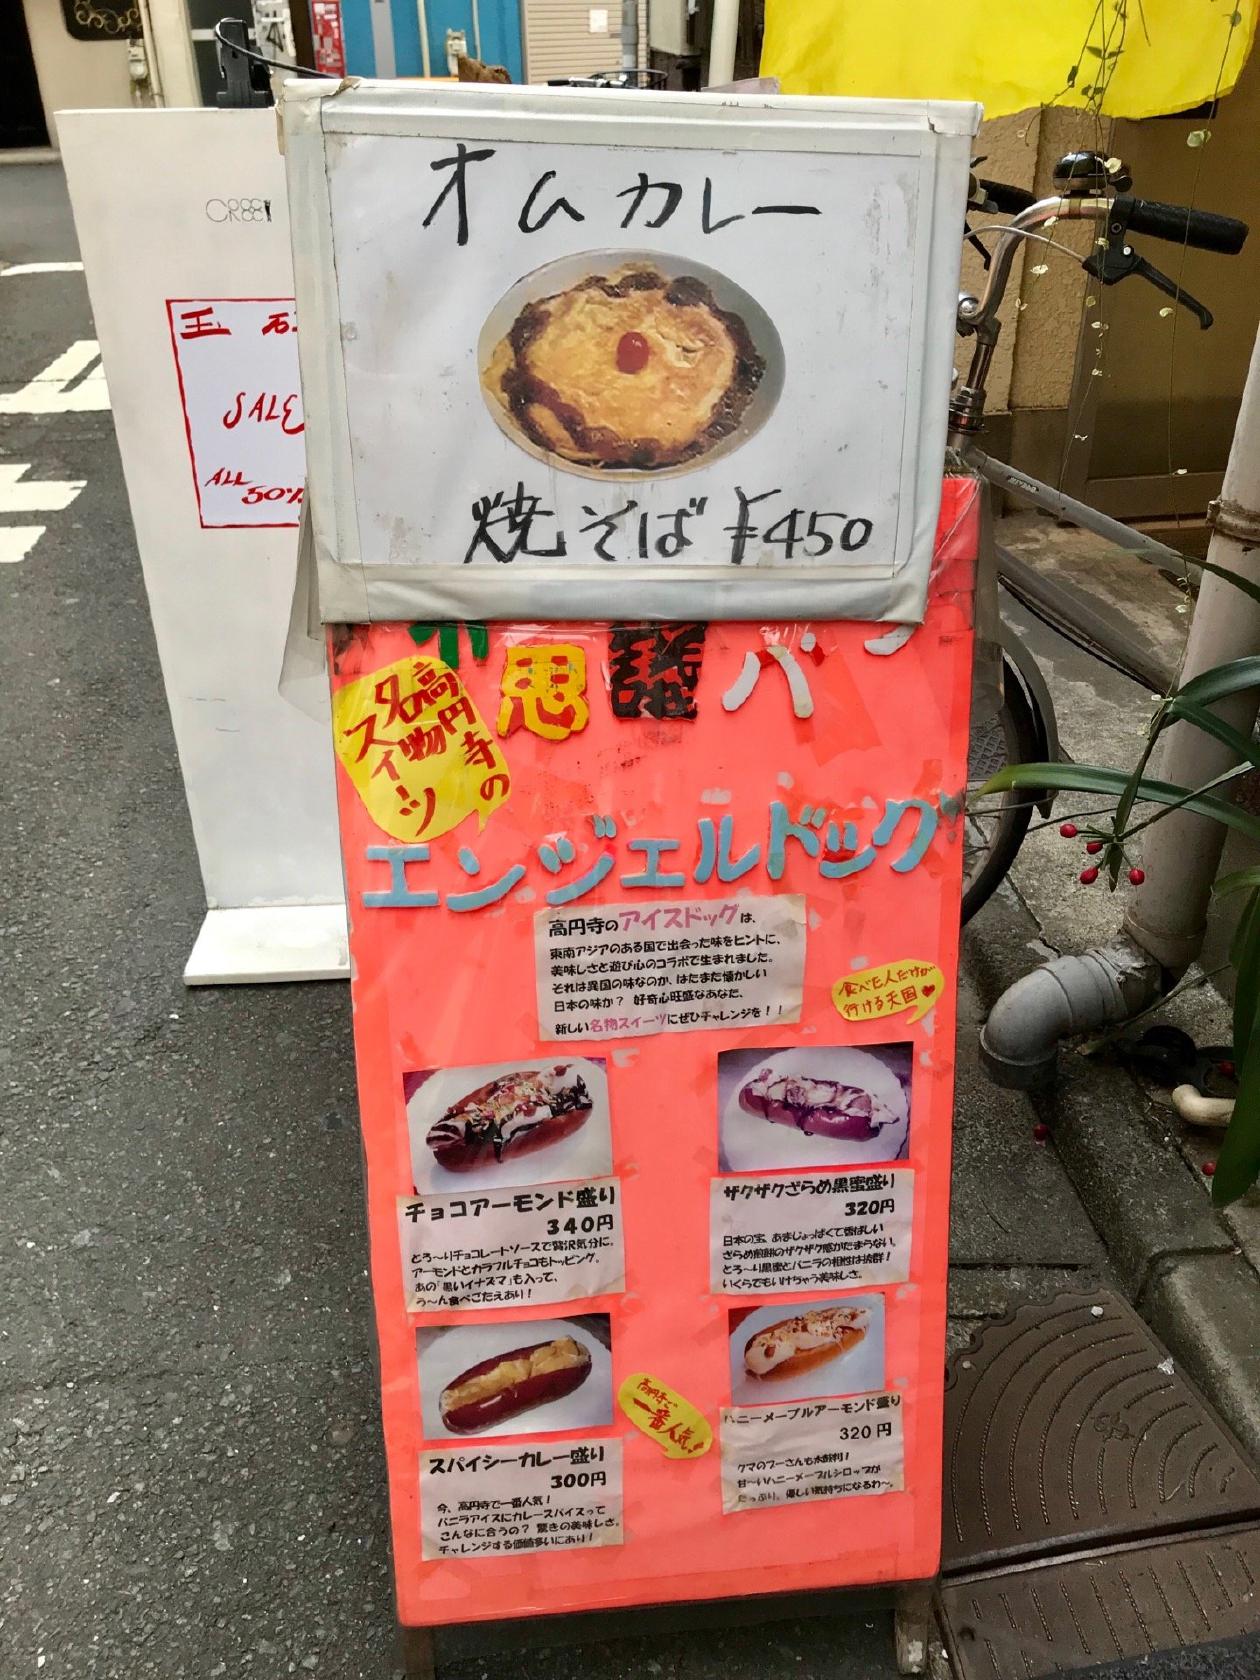 CROSS
玉
SALE
ALL
50%
オムカレー
焼そば ¥450
思議パン
高円寺の
名物
スイーツ
エンジェルドッグ
高円寺のアイスドッグは、
東南アジアのある国で出会った味をヒントに、
美味しさと遊び心のコラボで生まれました。
それは異国の味なのか、はたまた懐かしい
日本の味か？ 好奇心旺盛なあなた、
新しい名物スイーツにぜひチャレンジを！！
食べた人だけが
行ける天国♥
チョコアーモンド盛り
340円
とろ〜りチョコレートソースで贅沢気分に。
アーモンドとカラフルチョコもトッピング。
あの「黒いイナズマ」も入って、
う〜ん食べごたえあり！
ザクザクざらめ黒蜜盛り
320円
日本の宝、あまじょっぱくて香ばしい
ざらめ煎餅のザクザク感がたまらない。
とろ〜り黒蜜とバニラの相性は抜群！
いくらでもいけちゃう美味しさ。
スパイシーカレー盛り
300円
今、高円寺で一番人気！
バニラアイスにカレースパイスって
こんなに合うの？ 驚きの美味しさ。
チャレンジする価値多いにあり！
高円寺で
一番人気！
ハニーメープルアーモンド盛り
320円
クマのプーさんも太鼓判！
甘〜いハニーメープルシロップが
たっぷり。優しい気持ちになるわ〜。